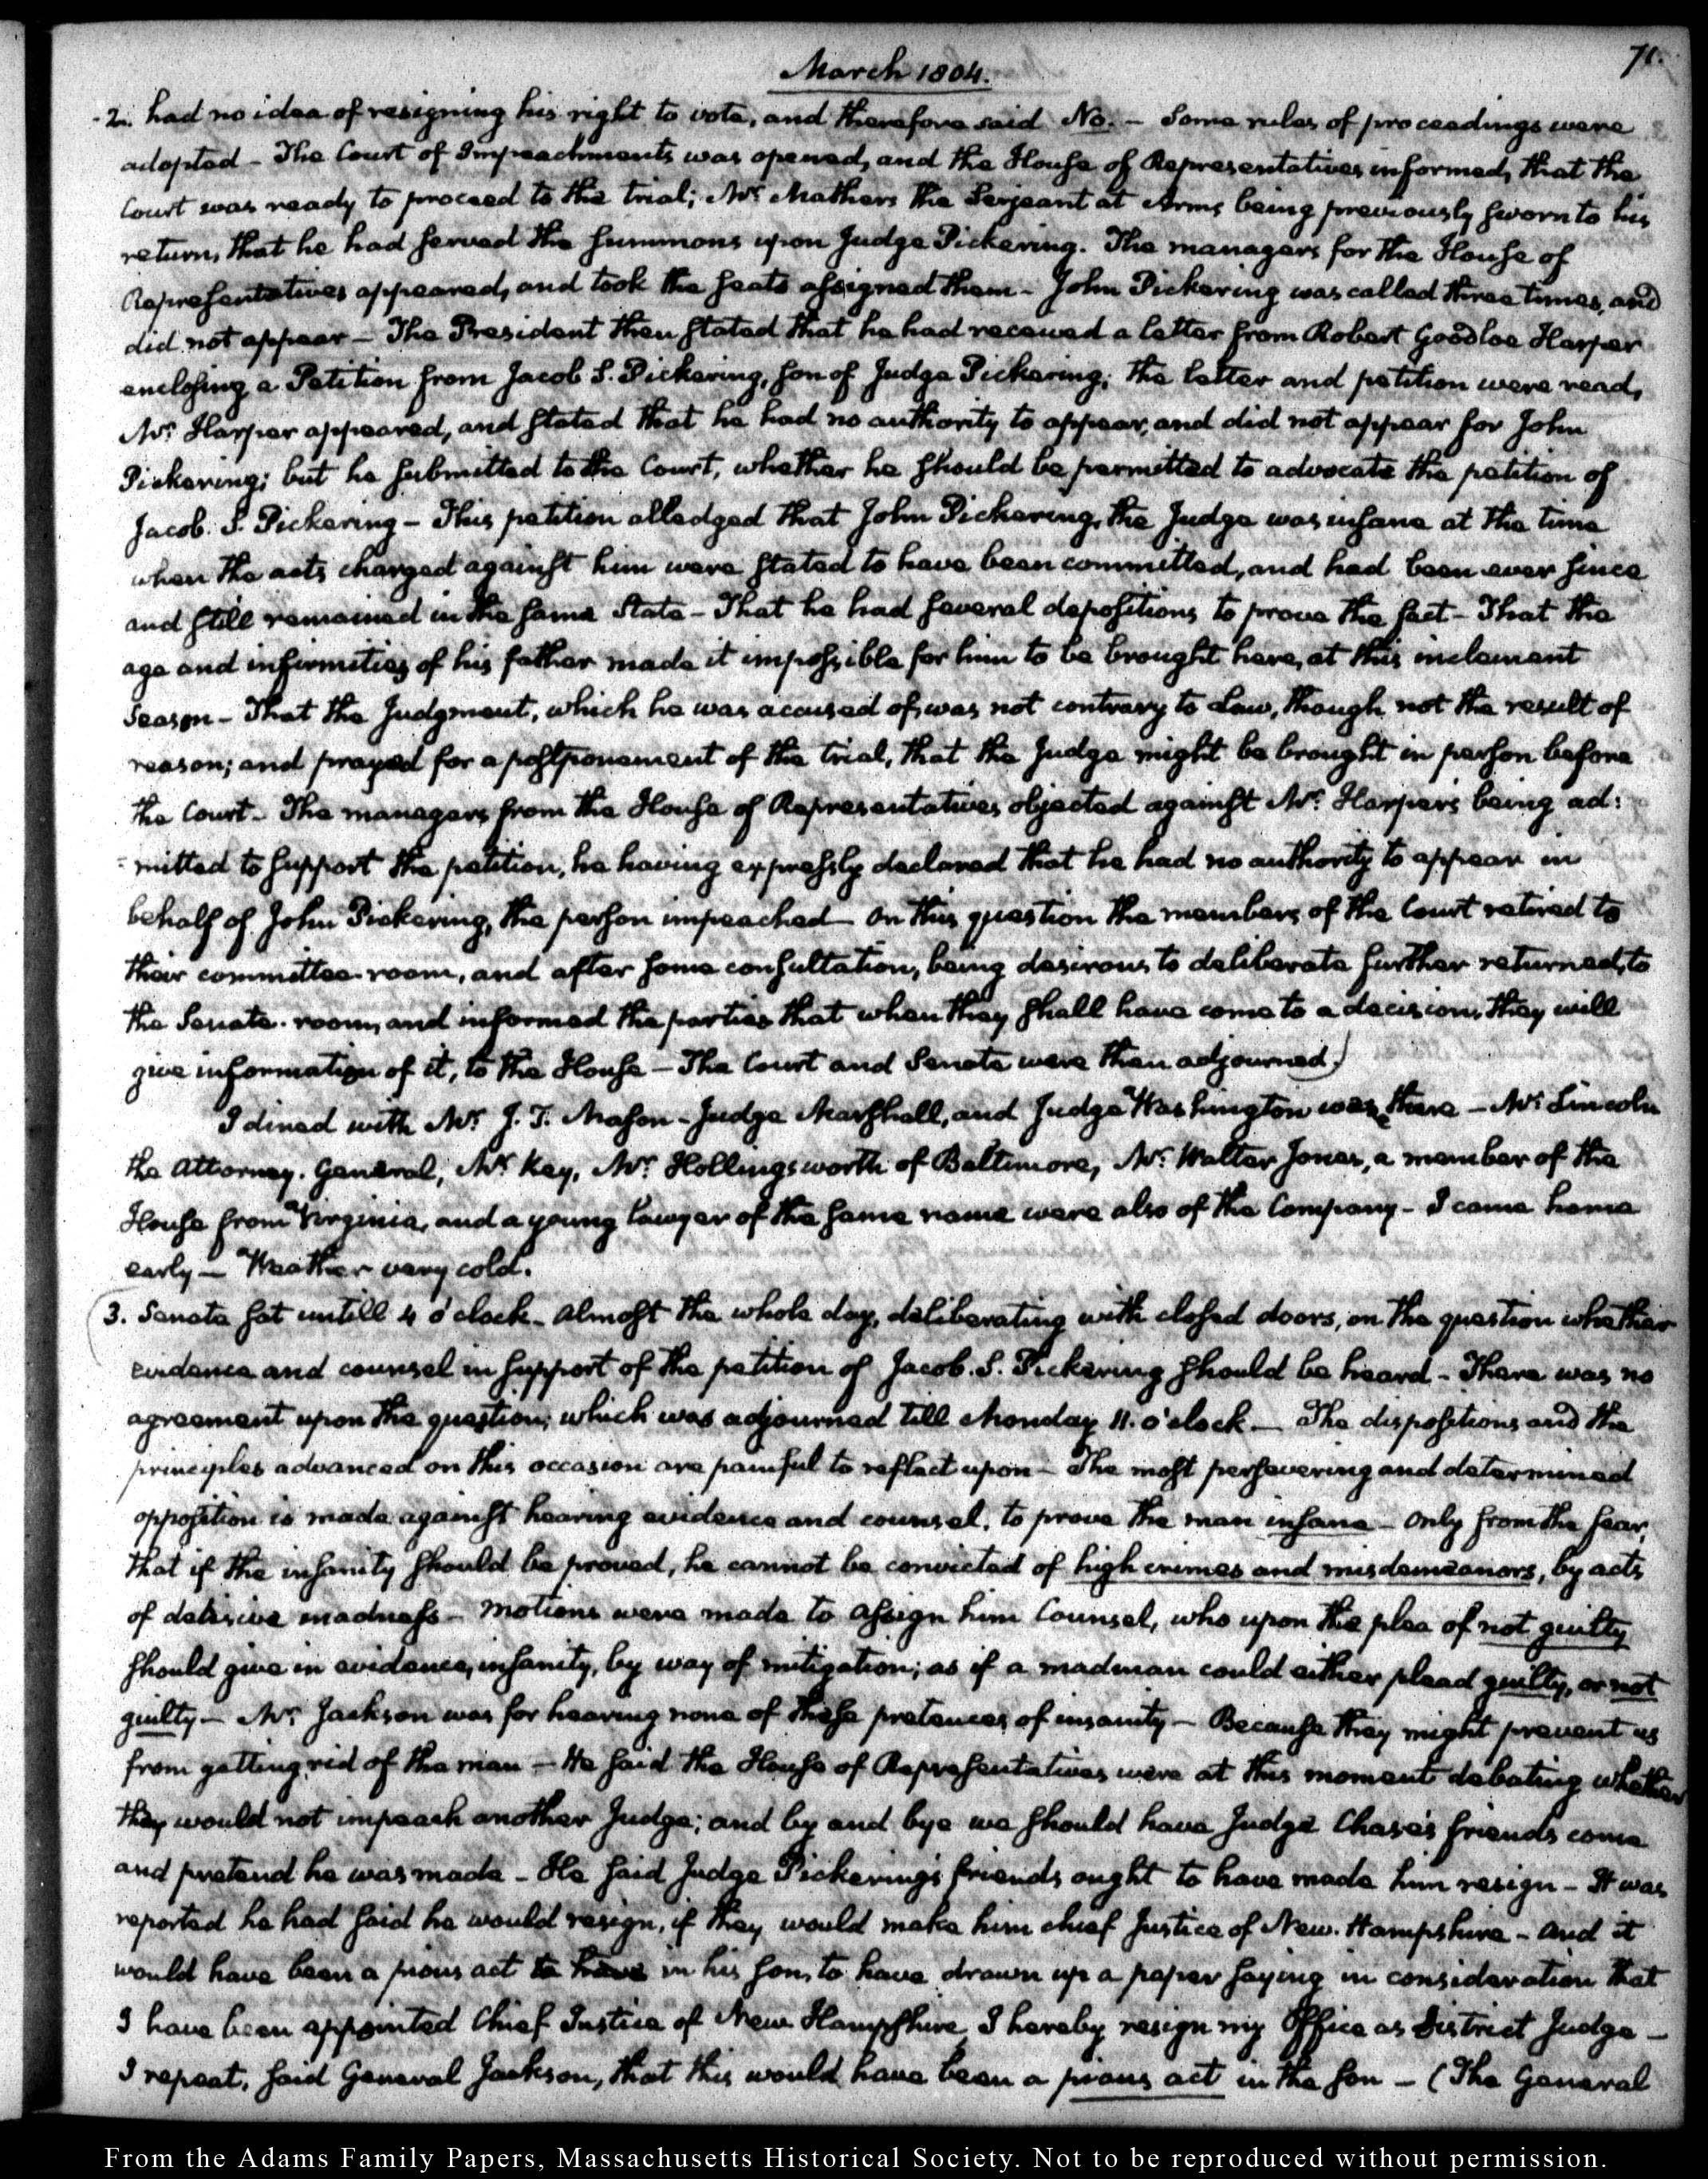 March 1804.
71.
2. had no idea of resigning his right to vote, and therefore said No. – Some rules of proceedings were
adopted – The Court of Impeachments was opened, and the House of Representatives informed, that the
Court was ready to proceed to the trial; Mr. Mathers the Serjeant at Arms being previously sworn to his
return, that he had served the summons upon Judge Pickering. The managers for the House of
Representatives appeared, and took the seats assigned them – John Pickering was called three times, and
did not appear – The President then stated that he had received a letter from Robert Goodloe Harper
enclosing a Petition from Jacob S. Pickering, son of Judge Pickering; the letter and petition were read,
Mr. Harper appeared, and stated that he had no authority to appear, and did not appear for John
Pickering; but he submitted to the Court, whether he should be permitted to advocate the petition of
Jacob. S. Pickering – This petition alledged that John Pickering, the Judge was insane at the time
when the acts charged against him were stated to have been committed, and had been ever since
and still remained in the same State – That he had several depositions to prove the fact – That the
age and infirmities of his father made it impossible for him to be brought here, at this inclement
Season – That the Judgment, which he was accused of, was not contrary to Law, though not the result of
reason; and prayed for a postponement of the trial, that the Judge might be brought in person before
the Court – The managers from the House of Representatives objected against Mr. Harper's being ad:
:mitted to support the petition, he having expressly declared that he had no authority to appear in
behalf of John Pickering, the person impeached – On this question the members of the Court retired to
their committee-room, and after some consultation, being desirous to deliberate further returned, to
the Senate-room, and informed the parties that when they shall have come to a decision, they will
give information of it, to the House – The Court and Senate were then adjourned.)
I dined with Mr. J. T. Mason – Judge Marshall, and Judge Washington was there – Mr. Lincoln
the Attorney. General, Mr. Key, Mr. Hollingsworth of Baltimore, Mr. Walter Jones, a member of the
House from Virginia, and a young lawyer of the same name were also of the Company – I came home
early – Weather very cold.
3. Senate sat untill 4 o'clock – Almost the whole day, deliberating with closed doors, on the question whether
evidence and counsel in support of the petition of Jacob. S. Pickering should be heard – There was no
agreement upon the question; which was adjourned till Monday 11. o'clock – The dispositions and the
principles advanced on this occasion are painful to reflect upon – The most persevering and determined
opposition is made against hearing evidence and counsel, to prove the man insane – Only from the fear,
that if the insanity should be proved, he cannot be convicted of high crimes and misdemeanors, by acts
of decisive madness – Motions were made to assign him Counsel, who upon the plea of not guilty
should give in evidence, insanity, by way of mitigation; as if a madman could either plead guilty, or not
guilty – Mr. Jackson was for hearing none of these pretences of insanity – Because they might prevent us
from getting rid of the man – He said the House of Representatives were at this moment debating whether
they would not impeach another Judge; and by and bye we should have Judge Chase's friends come
and pretend he was made – He said Judge Pickering's friends ought to have made him resign – It was
reported he had said he would resign, if they would make him chief Justice of New. Hampshire – And it
would have been a pious act to have in his son, to have drawn up a paper saying in consideration that
I have been appointed Chief Justice of New Hampshire, I hereby resign my Office as District Judge –
I repeat, said General Jackson, that this would have been a pious act in the son – (The General
From the Adams Family Papers, Massachusetts Historical Society. Not to be reproduced without permission.